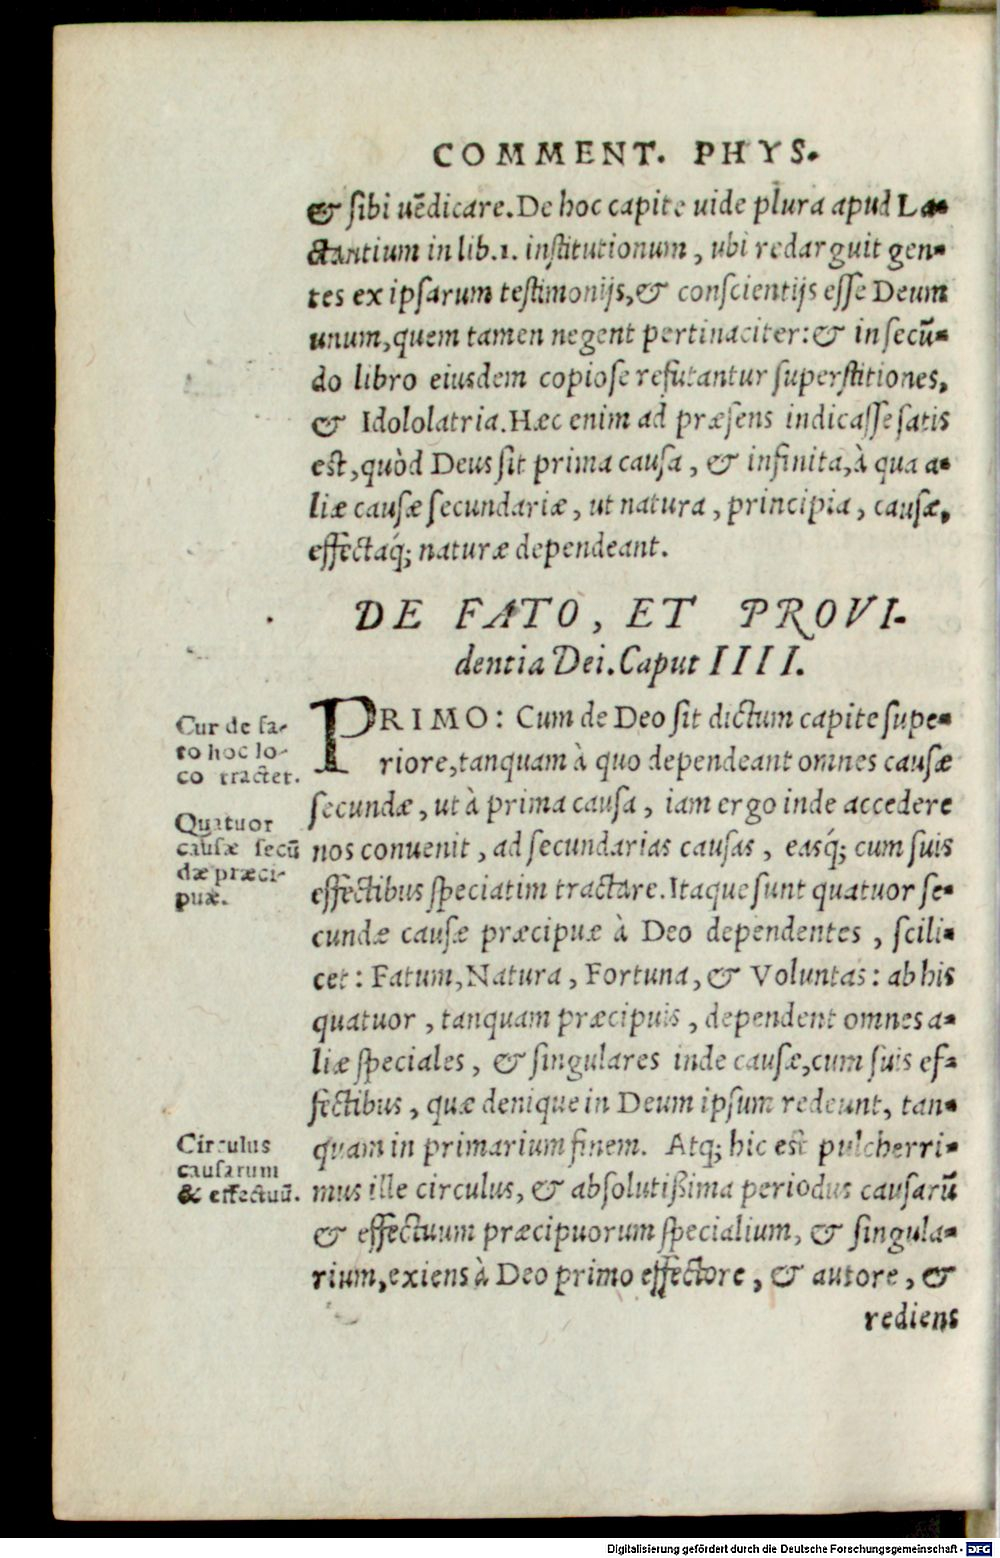 COMMENT. PHYS.
& sibi uẽdicare. De hoc capite uide plura apud La-
ctantium in lib.1. institutionum, ubi redarguit gen-
tes ex ipsarum testimonijs, & conscientijs esse Deum
unum, quem tamen negent pertinaciter: & in secũ-
do libro eiusdem copiose refutantur superstitiones,
& Idololatria. Hæc enim ad præsens indicasse satis
est, quòd Deus sit prima causa, & infinita, à qua a-
liæ causæ secundariæ, ut natura, principia, causæ,
effectaq́; naturæ dependeant.
DE FATO, ET PROVI-
dentia Dei. Caput IIII.
Cur de fa-
to hoc lo-
co tractet.
PRIMO: Cum de Deo sit dictum capite supe-
riore, tanquam à quo dependeant omnes causæ
secundæ, ut à prima causa, iam ergo inde accedere
Quatuor
causæ secũ
dæ præci-
puæ.
nos conuenit, ad secundarias causas, easq́; cum suis
effectibus speciatim tractare. Itaque sunt quatuor se-
cundæ causæ præcipuæ à Deo dependentes, scili-
cet: Fatum, Natura, Fortuna, & Voluntas: ab his
quatuor, tanquam præcipuis, dependent omnes a-
liæ speciales, & singulares inde causæ, cum suis ef-
fectibus, quæ denique in Deum ipsum redeunt, tan-
Circulus
causarum
& effectuũ.
quam in primarium finem. Atq; hic est pulcherri-
mus ille circulus, & absolutißima periodus causarũ
& effectuum præcipuorum specialium, & singula-
rium, exiens à Deo primo effectore, & autore, &
rediens
Digitalisierung gefördert durch die Deutsche Forschungsgemeinschaft - DFG